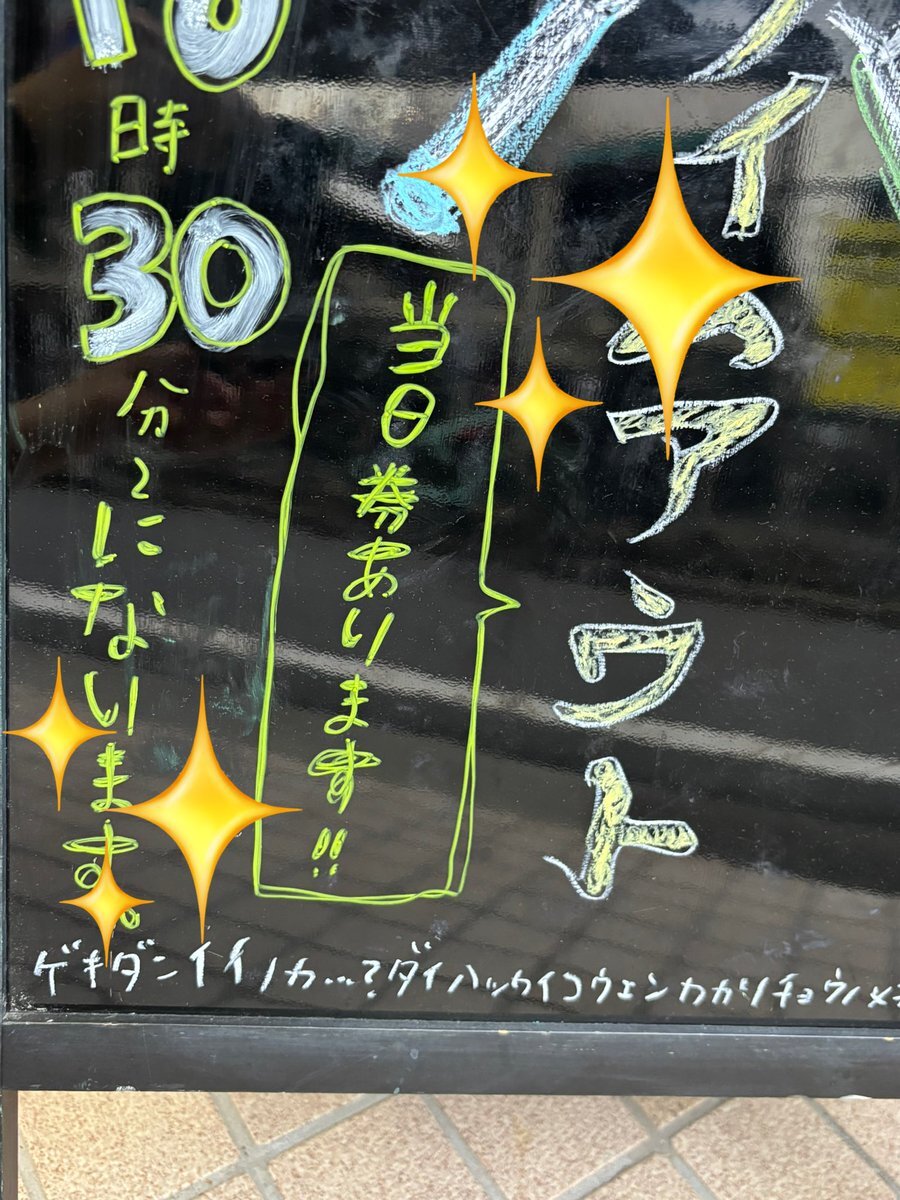 アウト
当日券あります!!
時
30
分〜になります。
ゲキダンイイノカ…?ダイハッカイコウエンカガリチョウノメ